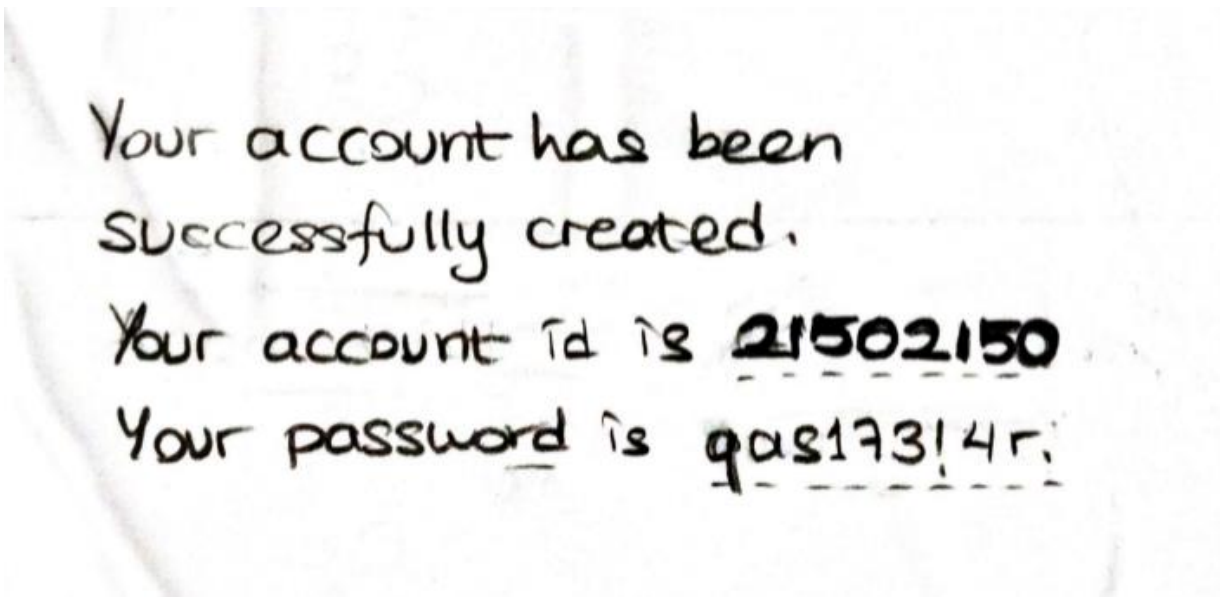 Your account has been
successfully created.
Your account id is 21502150
Your password is qas173!4r.